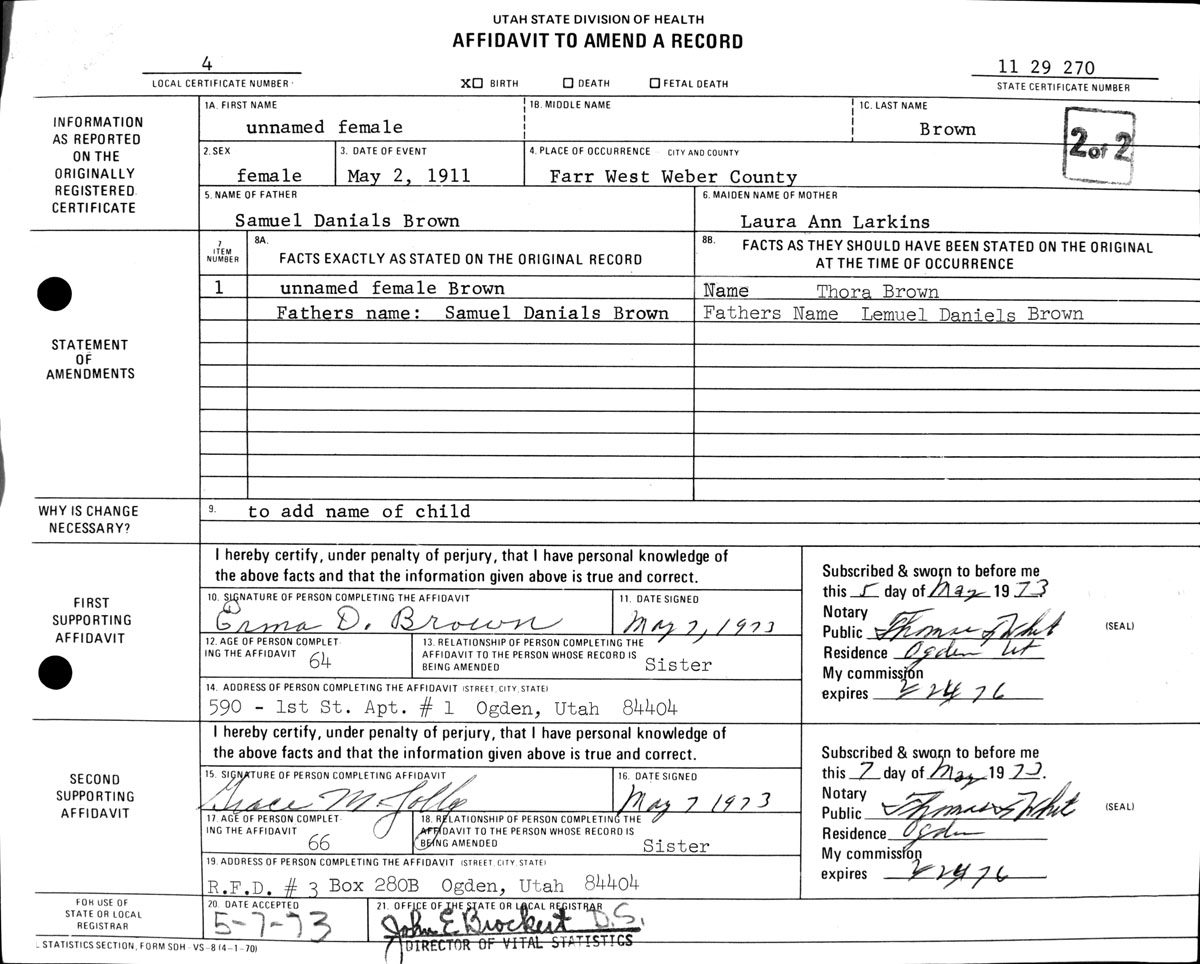 UTAH STATE DIVISION OF HEALTH
AFFIDAVIT TO AMEND A RECORD
4
LOCAL CERTIFICATE NUMBER
X BIRTH DEATH FETAL DEATH
11 29 270
STATE CERTIFICATE NUMBER
INFORMATION
AS REPORTED
ON THE
ORIGINALLY
REGISTERED
CERTIFICATE
1A. FIRST NAME 1B. MIDDLE NAME 1C. LAST NAME
unnamed female Brown
2 of 2
2. SEX 3. DATE OF EVENT 4. PLACE OF OCCURRENCE CITY AND COUNTY
female May 2, 1911 Farr West Weber County
5. NAME OF FATHER 6. MAIDEN NAME OF MOTHER
Samuel Danials Brown Laura Ann Larkins
STATEMENT
OF
AMENDMENTS
7
ITEM
NUMBER
8A.
FACTS EXACTLY AS STATED ON THE ORIGINAL RECORD
8B. FACTS AS THEY SHOULD HAVE BEEN STATED ON THE ORIGINAL
AT THE TIME OF OCCURRENCE
1 unnamed female Brown Name Thora Brown
Fathers name: Samuel Danials Brown Fathers Name Lemuel Daniels Brown
WHY IS CHANGE
NECESSARY?
9. to add name of child
FIRST
SUPPORTING
AFFIDAVIT
I hereby certify, under penalty of perjury, that I have personal knowledge of
the above facts and that the information given above is true and correct.
10. SIGNATURE OF PERSON COMPLETING THE AFFIDAVIT 11. DATE SIGNED
Erma D. Brown May 7, 1973
12. AGE OF PERSON COMPLET-
ING THE AFFIDAVIT 64
13. RELATIONSHIP OF PERSON COMPLETING THE
AFFIDAVIT TO THE PERSON WHOSE RECORD IS
BEING AMENDED Sister
14. ADDRESS OF PERSON COMPLETING THE AFFIDAVIT (STREET, CITY, STATE)
590 - 1st St. Apt. # 1 Ogden, Utah 84404
Subscribed & sworn to before me
this 5 day of May 1973
Notary
Public Thomas
(SEAL)
Residence Ogden Ut
My commission
expires 24 76
SECOND
SUPPORTING
AFFIDAVIT
I hereby certify, under penalty of perjury, that I have personal knowledge of
the above facts and that the information given above is true and correct.
15. SIGNATURE OF PERSON COMPLETING AFFIDAVIT 16. DATE SIGNED
Grace M. Jolly May 7 1973
17. AGE OF PERSON COMPLET-
ING THE AFFIDAVIT 66
18. RELATIONSHIP OF PERSON COMPLETING THE
AFFIDAVIT TO THE PERSON WHOSE RECORD IS
BEING AMENDED Sister
19. ADDRESS OF PERSON COMPLETING THE AFFIDAVIT (STREET, CITY, STATE)
R.F.D. # 3 Box 280B Ogden, Utah 84404
Subscribed & sworn to before me
this 7 day of May 1973.
Notary
Public Thomas
(SEAL)
Residence Ogden
My commission
expires 24 76
FOR USE OF
STATE OR LOCAL
REGISTRAR
20. DATE ACCEPTED
5-7-73
21. OFFICE OF THE STATE OR LOCAL REGISTRAR
John E Brockert D.S.
DIRECTOR OF VITAL STATISTICS
L STATISTICS SECTION, FORM SDH - VS - 8 (4-1-70)